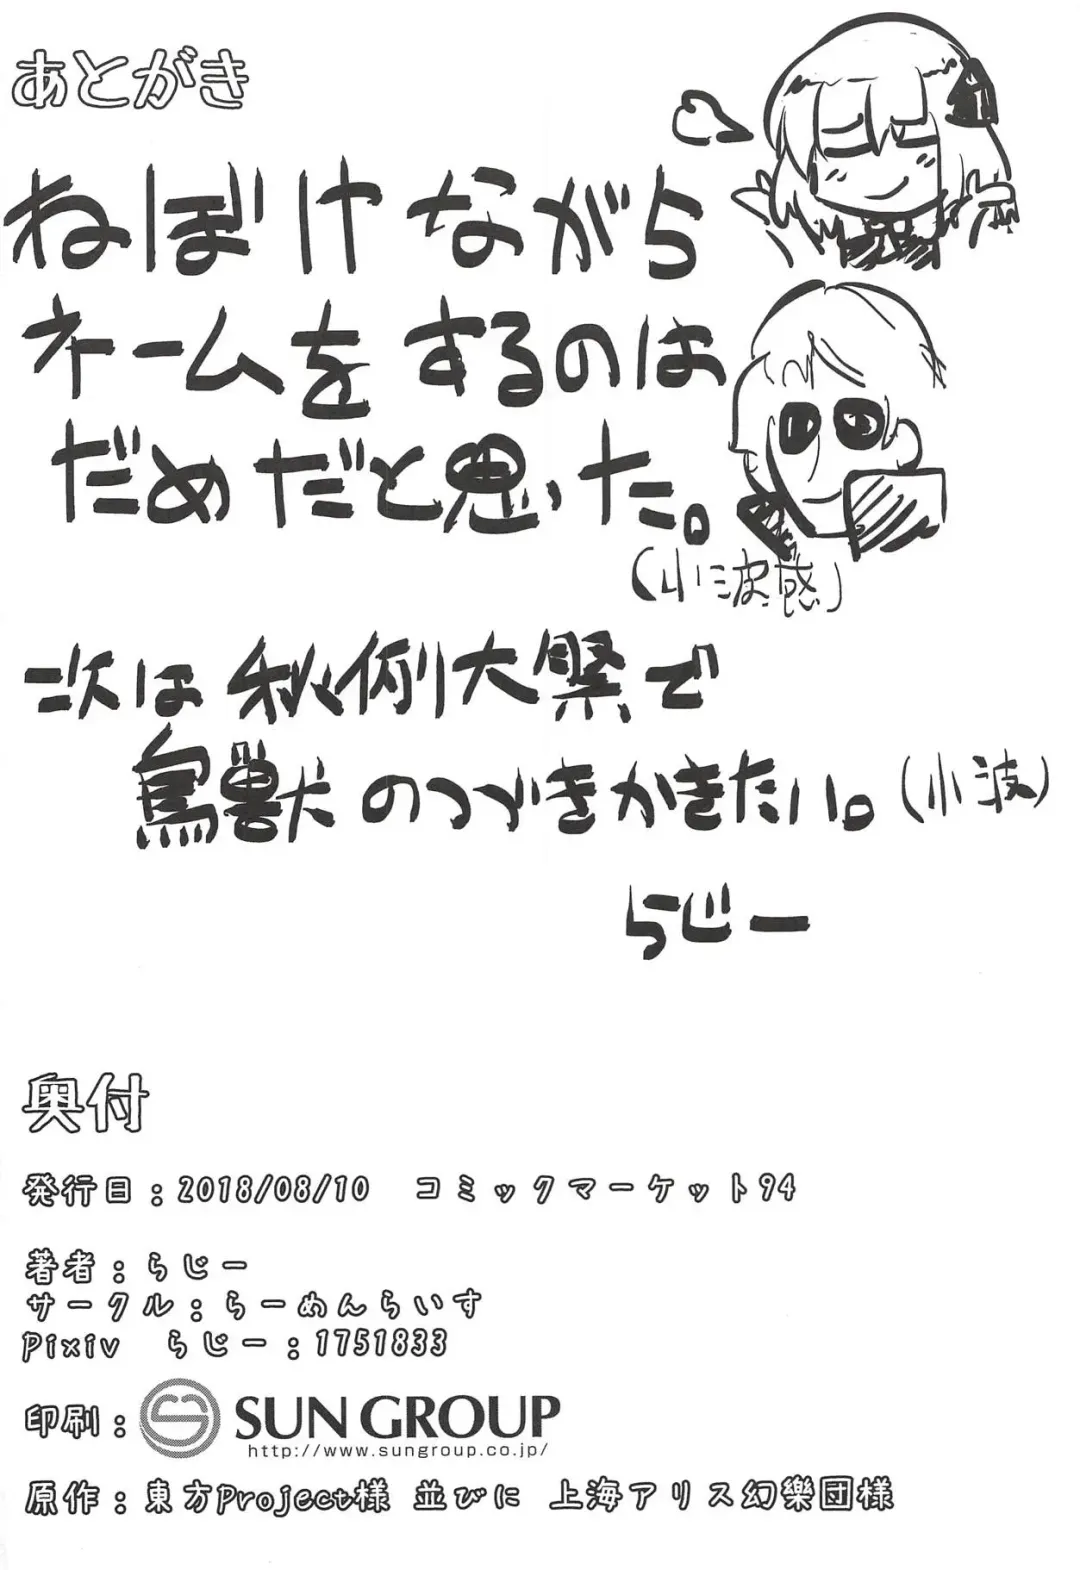 あとがき
ねぼけながら
ネームをするのは
だめだと思いた。
(小並感)
次は秋例大祭で
鳥獣のつづきかきたい。(小波)
らじー
奥付
発行日：2018/08/10　コミックマーケット94
著者：らじー
サークル：らーめんらいす
Pixiv　らじー：1751833
印刷：SUN GROUP
http://www.sungroup.co.jp/
原作：東方Project様 並びに 上海アリス幻樂団様